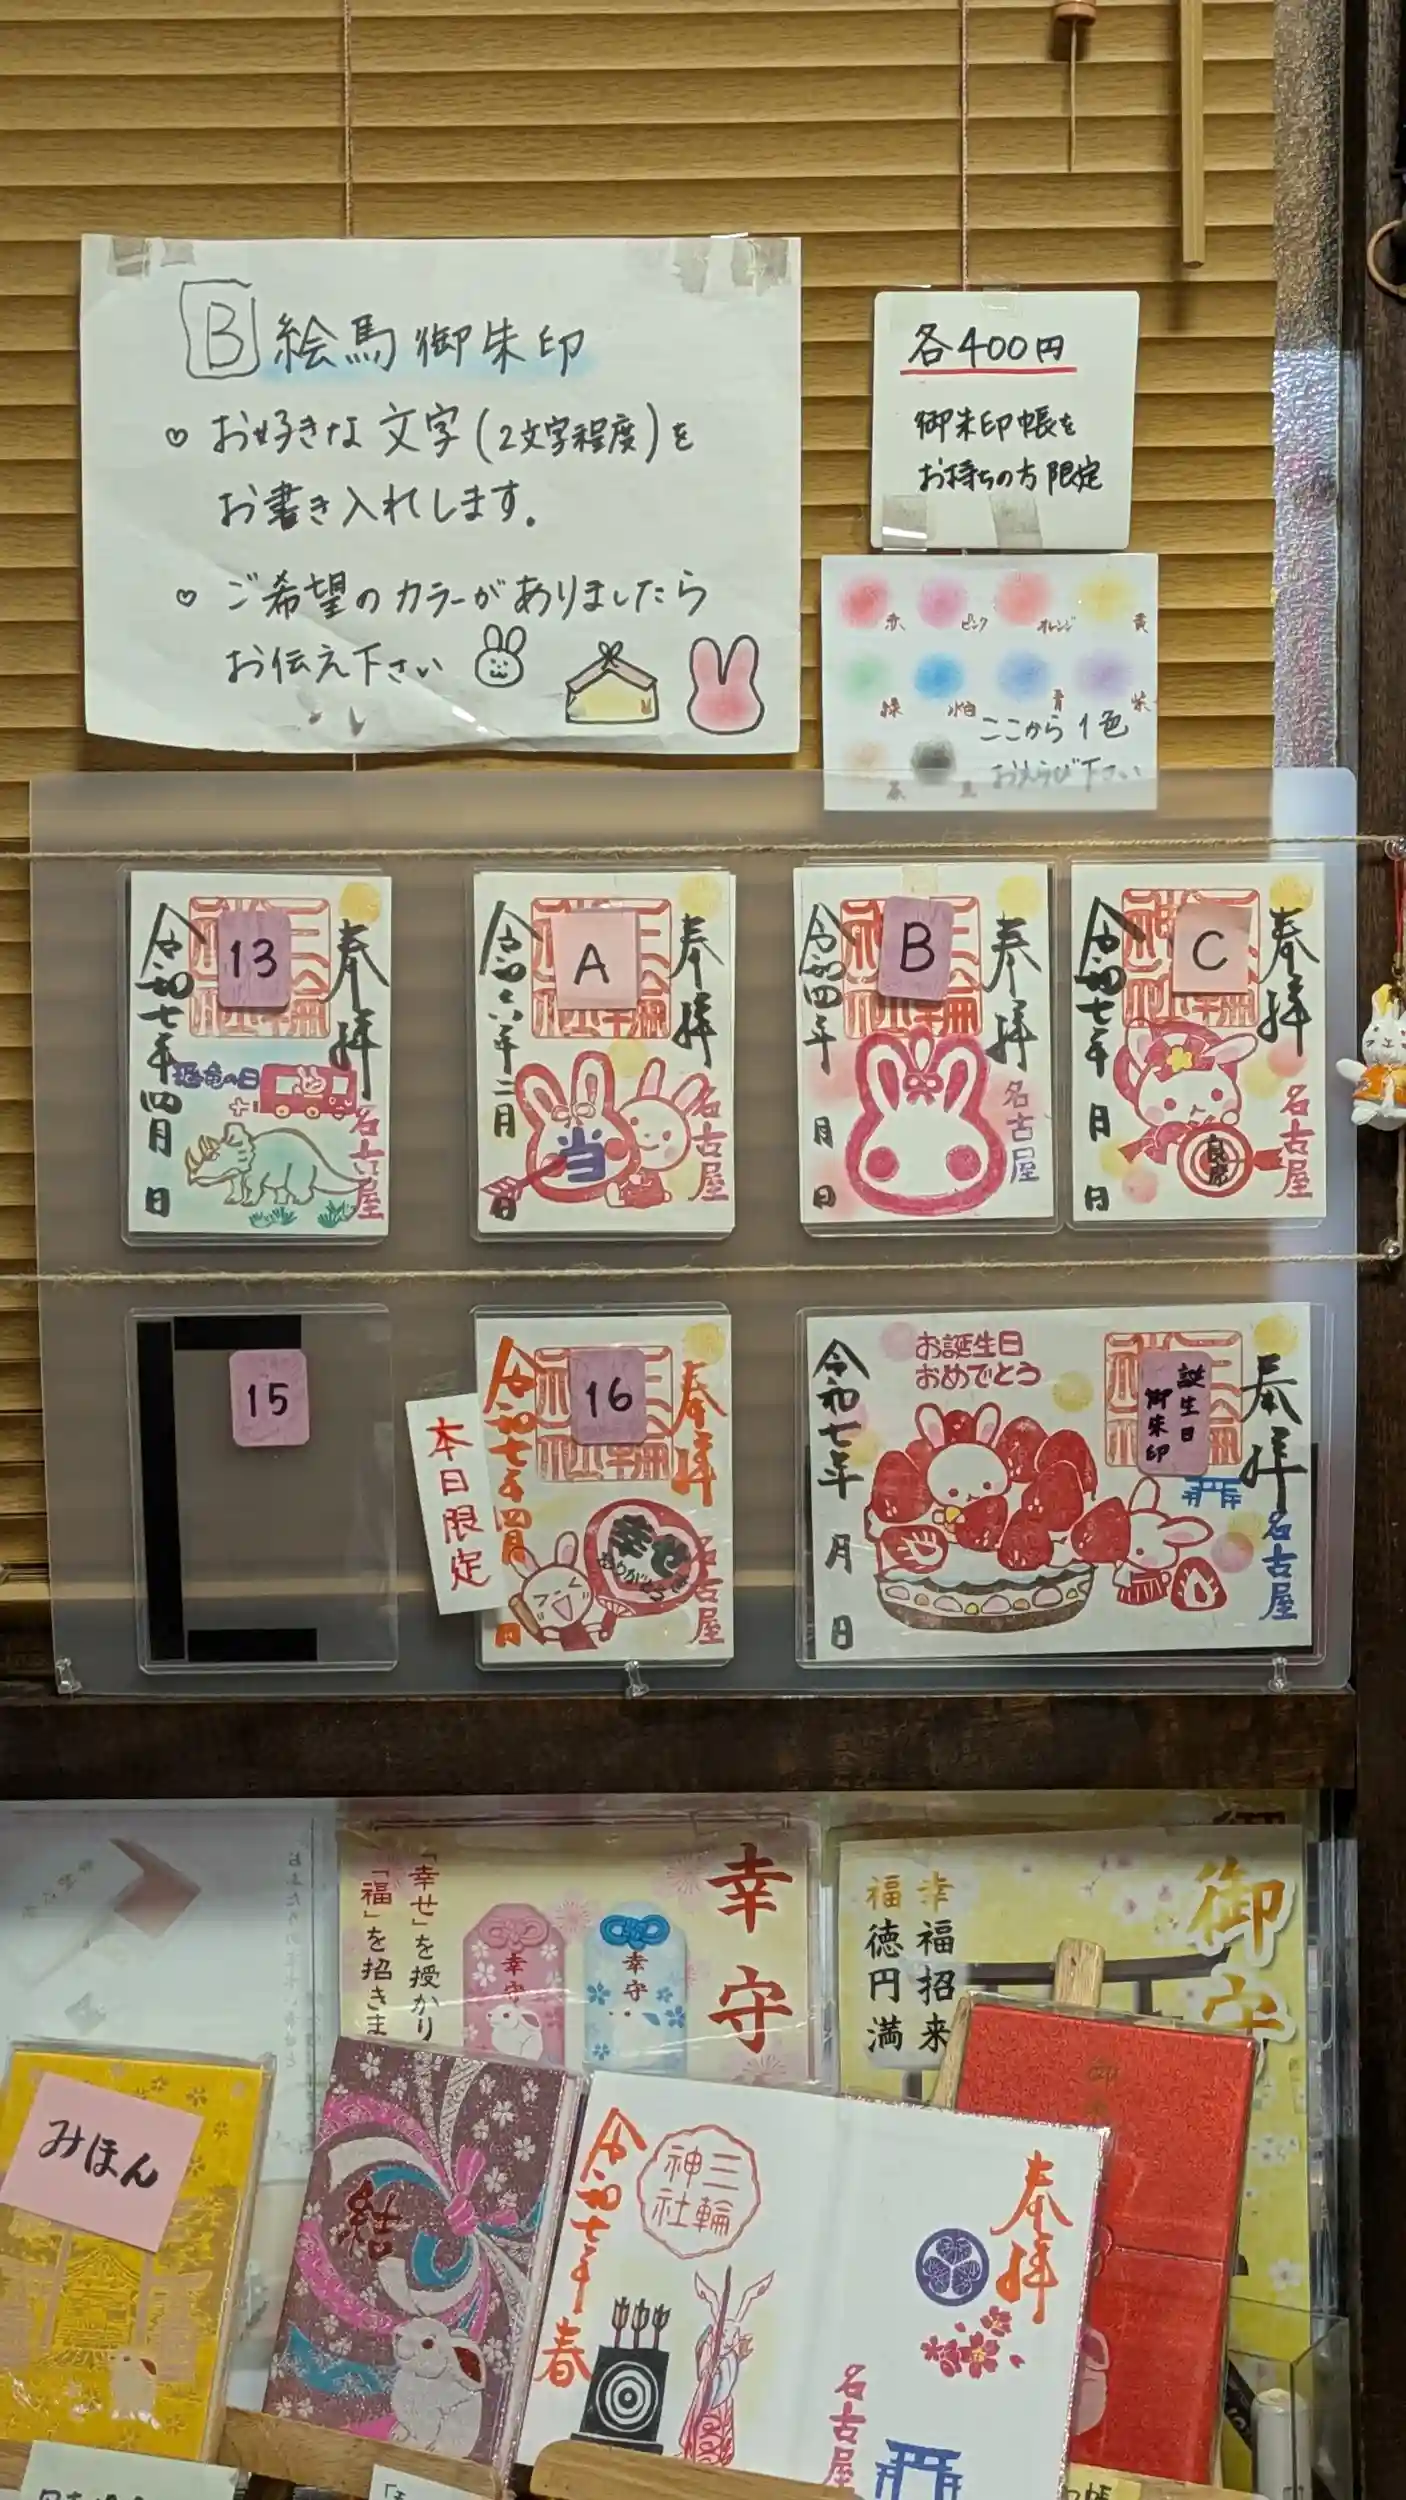 B 絵馬御朱印
♡ お好きな文字(2文字程度)を
お書き入れします。
♡ ご希望のカラーがありましたら
お伝え下さい
各400円
御朱印帳を
お持ちの方限定
赤 ピンク オレンジ 黄
緑 水色 青 紫
茶 黒
ここから1色
おえらび下さい
13
奉拝
名古屋
恐竜の日
令和七年四月 日
A
奉拝
名古屋
当
令和六年二月 日
B
奉拝
名古屋
令和四年 月 日
C
奉拝
名古屋
令和七年 月 日
15
本日限定
16
奉拝
名古屋
幸せ
ありがとう
令和七年四月 日
お誕生日
おめでとう
誕生日
御朱印
奉拝
名古屋
令和七年 月 日
幸守
「幸せ」を授かり
「福」を招きま
幸守
幸守
御守
幸福招来
福徳円満
みほん
結
奉拝
名古屋
三輪
神社
令和七年春